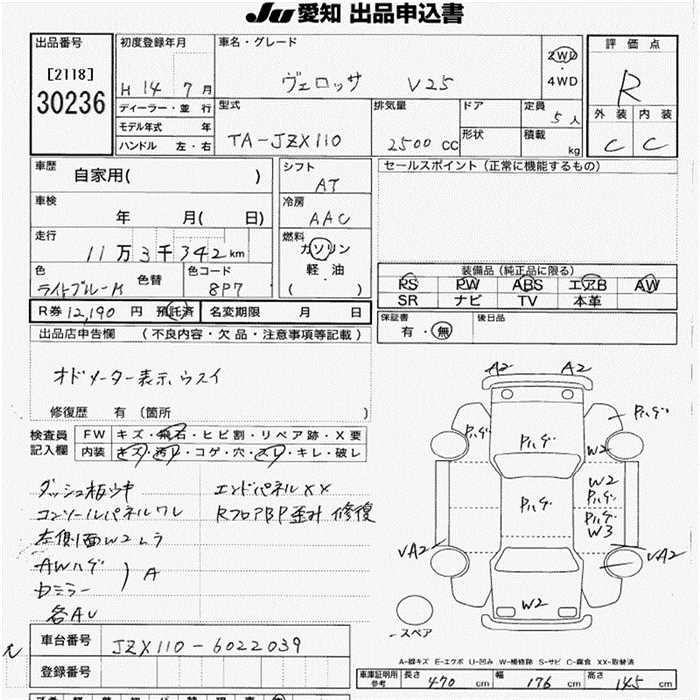 JU 愛知 出品申込書
出品番号
[2118]
30236
初度登録年月
H 14 7 月
ディーラー・並 行
モデル年式 年
ハンドル 左・右
車名・グレード
ヴェロッサ V25
2WD
・
4WD
型式
TA-JZX110
排気量
2500 CC
ドア
形状
定員
5 人
積載
kg
評 価 点
R
外 装 内 装
C C
車歴
自家用( )
車検
年 月( 日)
走行
11万3千342km
色
ライトブルーM
色替
色コード
8P7
シフト
AT
冷房
AAC
燃料
ガソリン
軽・油
( )
セールスポイント(正常に機能するもの)
装備品(純正品に限る)
PS PW ABS エアB AW
SR ナビ TV 本革
R券 12,190 円 預託済
名変期限 月 日
保証書
有・無
後日品
出品店申告欄 (不良内容・欠品・注意事項等記載)
オドメーター表示ウスイ
修復歴 有 〔箇所 〕
検査員
記入欄
FW キズ・飛石・ヒビ割・リペア跡・X要
内装 キズ・汚レ・コゲ・穴・スレ・キレ・破レ
ダッシュ板ウキ
コンソールパネルワレ
左側面W2ムラ
AWハゲ
ドミラー
) A
各AU
エンドパネルXX
RフロアBP歪み 修復
A2 A2
Pハゲ
Pハゲ
Pハゲ
W2
Pハゲ
W2
Pハゲ
Pハゲ
W3
VA2
VA2
W2
スペア
車台番号
JZX110-6022039
登録番号
A-線キズ E-エクボ U-凹み W-補修跡 S-サビ C-腐食 XX-取替済
車庫証明用
参考
長さ 470 cm
幅 176 cm
高さ 145 cm